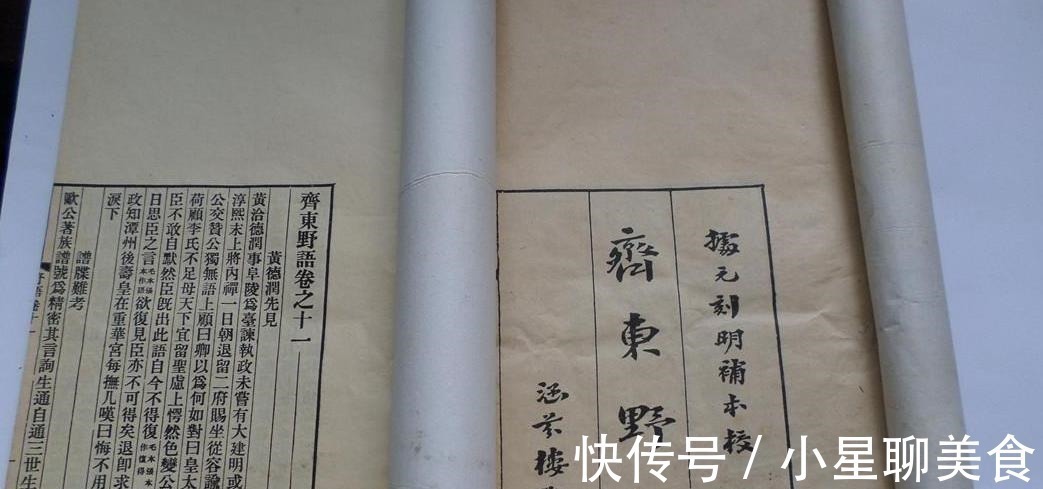 據元刻明補本校
齊東野
涵芬樓
齊東野語卷之十一
黃德潤先見
黃洽德潤事阜陵爲臺諫執政未嘗有大建明或
淳熙末上將內禪一日朝退留二府賜坐從容諭
公交贊公獨無語上顧曰卿以爲何如對曰皇太
荷顧李氏不足母天下宜留聖慮上愕然色變公
臣不敢自默然臣旣出此語自今不得復毛本張本作復得
日思臣之言毛本張本作語欲復見臣亦不可得矣退卽求
政知潭州後壽皇在重華宮每撫几嘆曰悔不用
淚下
譜牒難考
歐公著族譜號爲精密其言詢生通自通三世生
野語卷十一
快传号 / 小星聊美食